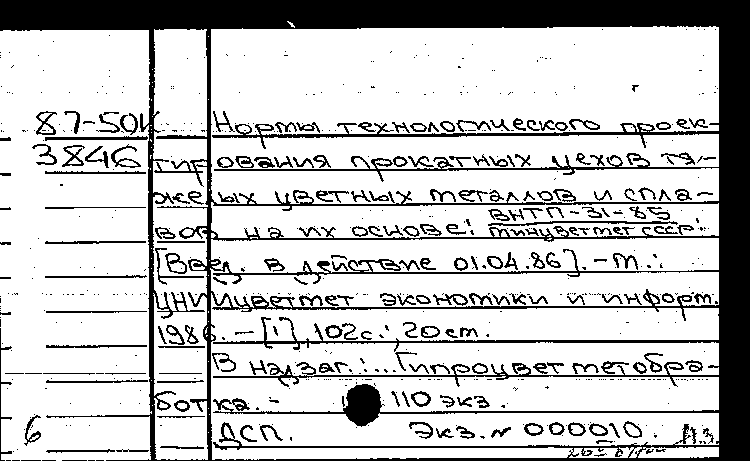 87-50К Нормы технологического проек-
3846 тирования прокатных цехов тя-
желых цветных металлов и спла-
вов на их основе: ВНТП-31-85
Минцветмет СССР:
[Введ. в действие 01.04.86]. - М.:
ЦНИИцветмет экономики и информ.
1986. - [1], 102с.; 20см.
В надзаг.: ...Гипроцветметобра-
ботка. - 110 экз.
6 ДСП. Экз. № 000010.